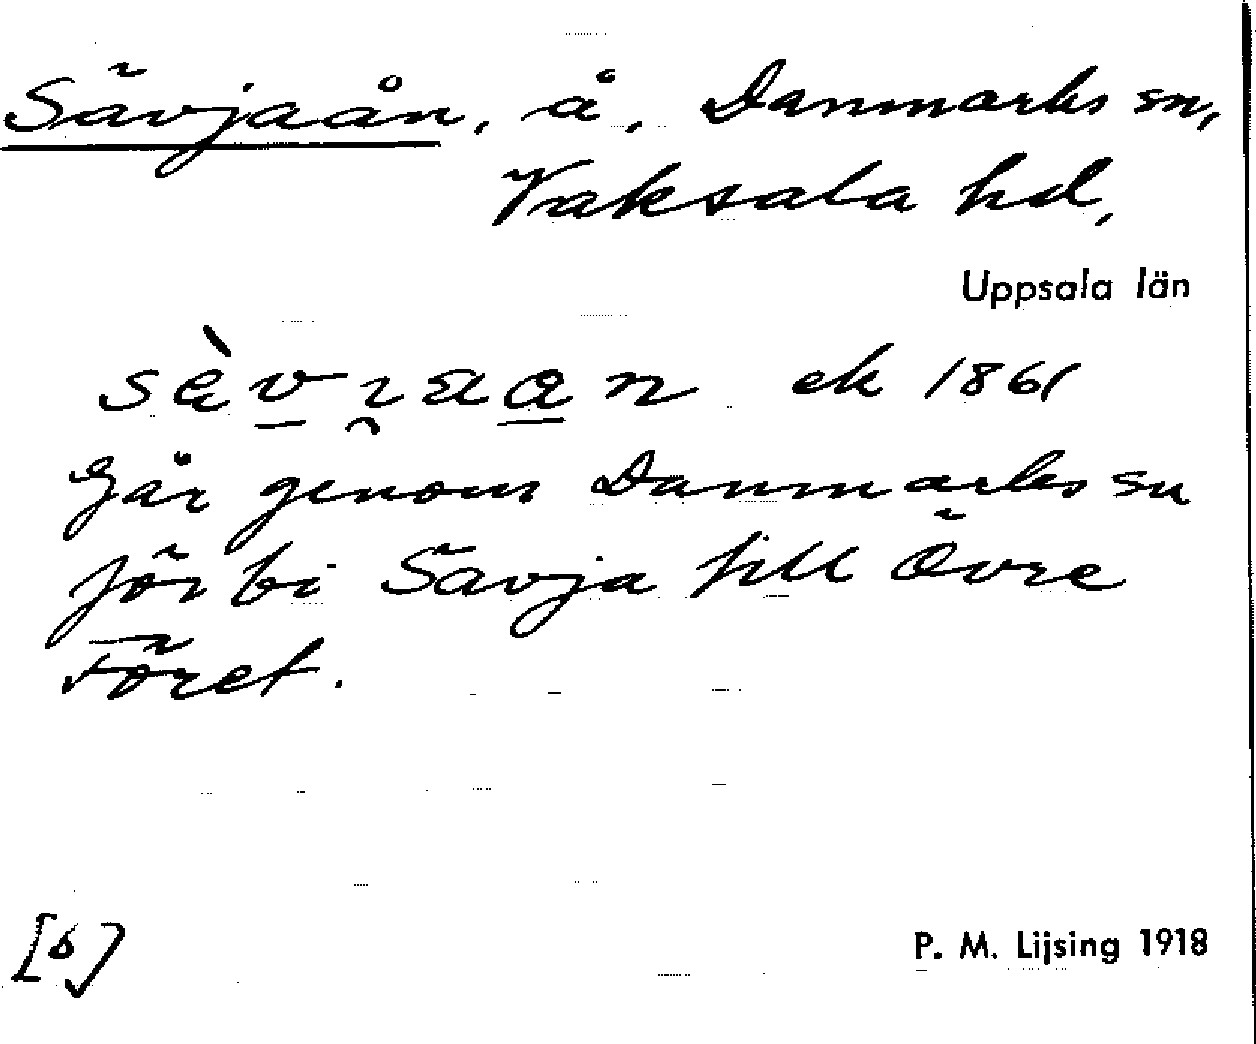 Sävjaån, å, Danmarks sn,
Vaksala hd,
Uppsala län
ek 1861
Går genom Danmarks sn
förbi Sävja till Övre
Föret.
[6]
P. M. Lijsing 1918